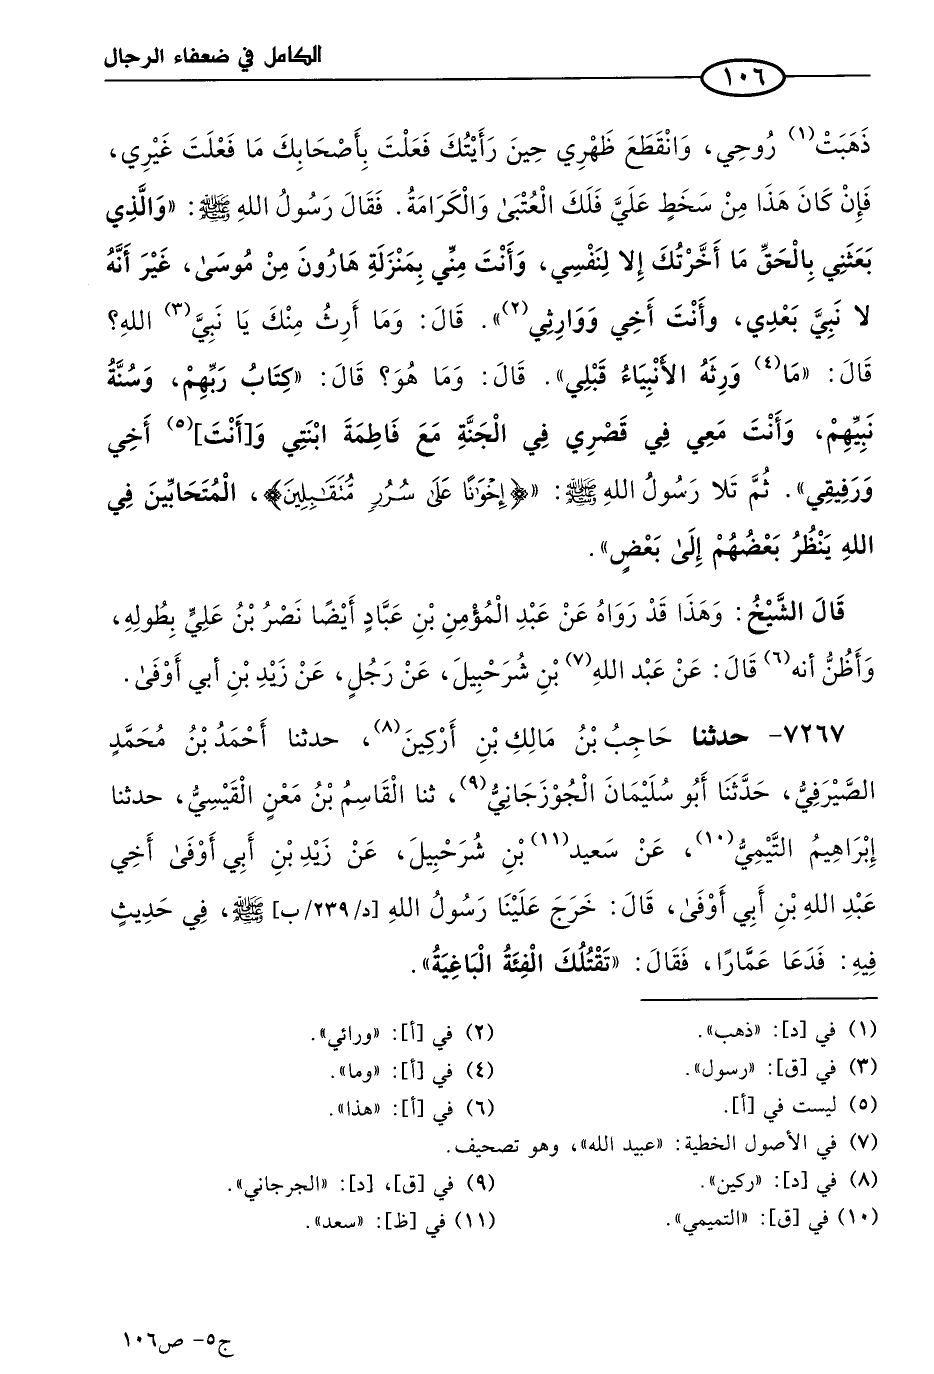 الكامل في ضعفاء الرجال
١٠٦
ذَهَبَتْ(١) رُوحِي، وَانْقَطَعَ ظَهْرِي حِينَ رَأَيْتُكَ فَعَلْتَ بِأَصْحَابِكَ مَا فَعْلَتَ غَيْرِي،
فَإِنْ كَانَ هَذَا مِنْ سَخَطٍ عَلَيَّ فَلَكَ الْعُتْبَىٰ وَالْكَرَامَةُ. فَقَالَ رَسُولُ اللهِ ﷺ: «وَالَّذِي
بَعَثَنِي بِالْحَقِّ مَا أَخَّرْتُكَ إِلا لِنَفْسِي، وَأَنْتَ مِنِّي بِمَنْزِلَةِ هَارُونَ مِنْ مُوسَىٰ، غَيْرَ أَنَّهُ
لا نَبِيَّ بَعْدِي، وأَنْتَ أَخِي وَوَارِثِي(٢)». قَالَ: وَمَا أَرِثُ مِنْكَ يَا نَبِيَّ(٣) اللهِ؟
قَالَ: «مَا(٤) وَرِثَهُ الأَنْبِيَاءُ قَبْلِي». قَالَ: وَمَا هُوَ؟ قَالَ: «كِتَابُ رَبِّهِمْ، وَسُنَّةُ
نَبِيِّهِمْ، وَأَنْتَ مَعِي فِي قَصْرِي فِي الْجَنَّةِ مَعَ فَاطِمَةَ ابْنَتِي وَ[أَنْتَ](٥) أَخِي
وَرَفِيقِي». ثُمَّ تَلا رَسُولُ اللهِ ﷺ: «﴿إِخْوَٰنًا عَلَىٰ سُرُرٍ مُّتَقَٰبِلِينَ﴾، الْمُتَحَابِّينَ فِي
اللهِ يَنْظُرُ بَعْضُهُمْ إِلَىٰ بَعْضٍ».
قَالَ الشَّيْخُ: وَهَذَا قَدْ رَوَاهُ عَنْ عَبْدِ الْمُؤْمِنِ بْنِ عَبَّادٍ أَيْضًا نَصْرُ بْنُ عَلِيٍّ بِطُولِهِ،
وَأَظُنُّ أنه(٦) قَالَ: عَنْ عَبْد اللهِ(٧) بْنِ شُرَحْبِيلَ، عَنْ رَجُلٍ، عَنْ زَيْدِ بْنِ أبي أَوْفَىٰ.
٧٢٦٧- حدثنا حَاجِبُ بْنُ مَالِكِ بْنِ أَرْكِينَ(٨)، حدثنا أَحْمَدُ بْنُ مُحَمَّدٍ
الصَّيْرَفِيُّ، حَدَّثَنَا أَبُو سُلَيْمَانَ الْجُوْزَجَانِيُّ(٩)، ثنا الْقَاسِمُ بْنُ مَعْنٍ الْقَيْسِيُّ، حدثنا
إِبْرَاهِيمُ التَّيْمِيُّ(١٠)، عَنْ سَعيد(١١) بْنِ شُرَحْبِيلَ، عَنْ زَيْدِ بْنِ أَبِي أَوْفَىٰ أَخِي
عَبْدِ اللهِ بْنِ أَبِي أَوْفَىٰ، قَالَ: خَرَجَ عَلَيْنَا رَسُولُ اللهِ [د/٢٣٩/ب] ﷺ، فِي حَدِيثٍ
فِيهِ: فَدَعَا عَمَّارًا، فَقَالَ: «تَقْتُلُكَ الْفِئَةُ الْبَاغِيَةُ».
(١) في [د]: «ذهب». (٢) في [أ]: «ورائي».
(٣) في [ق]: «رسول». (٤) في [أ]: «وما».
(٥) ليست في [أ]. (٦) في [أ]: «هذا».
(٧) في الأصول الخطية: «عبيد الله»، وهو تصحيف.
(٨) في [د]: «ركين». (٩) في [ق]، [د]: «الجرجاني».
(١٠) في [ق]: «التميمي». (١١) في [ظ]: «سعد».
ج٥- ص١٠٦